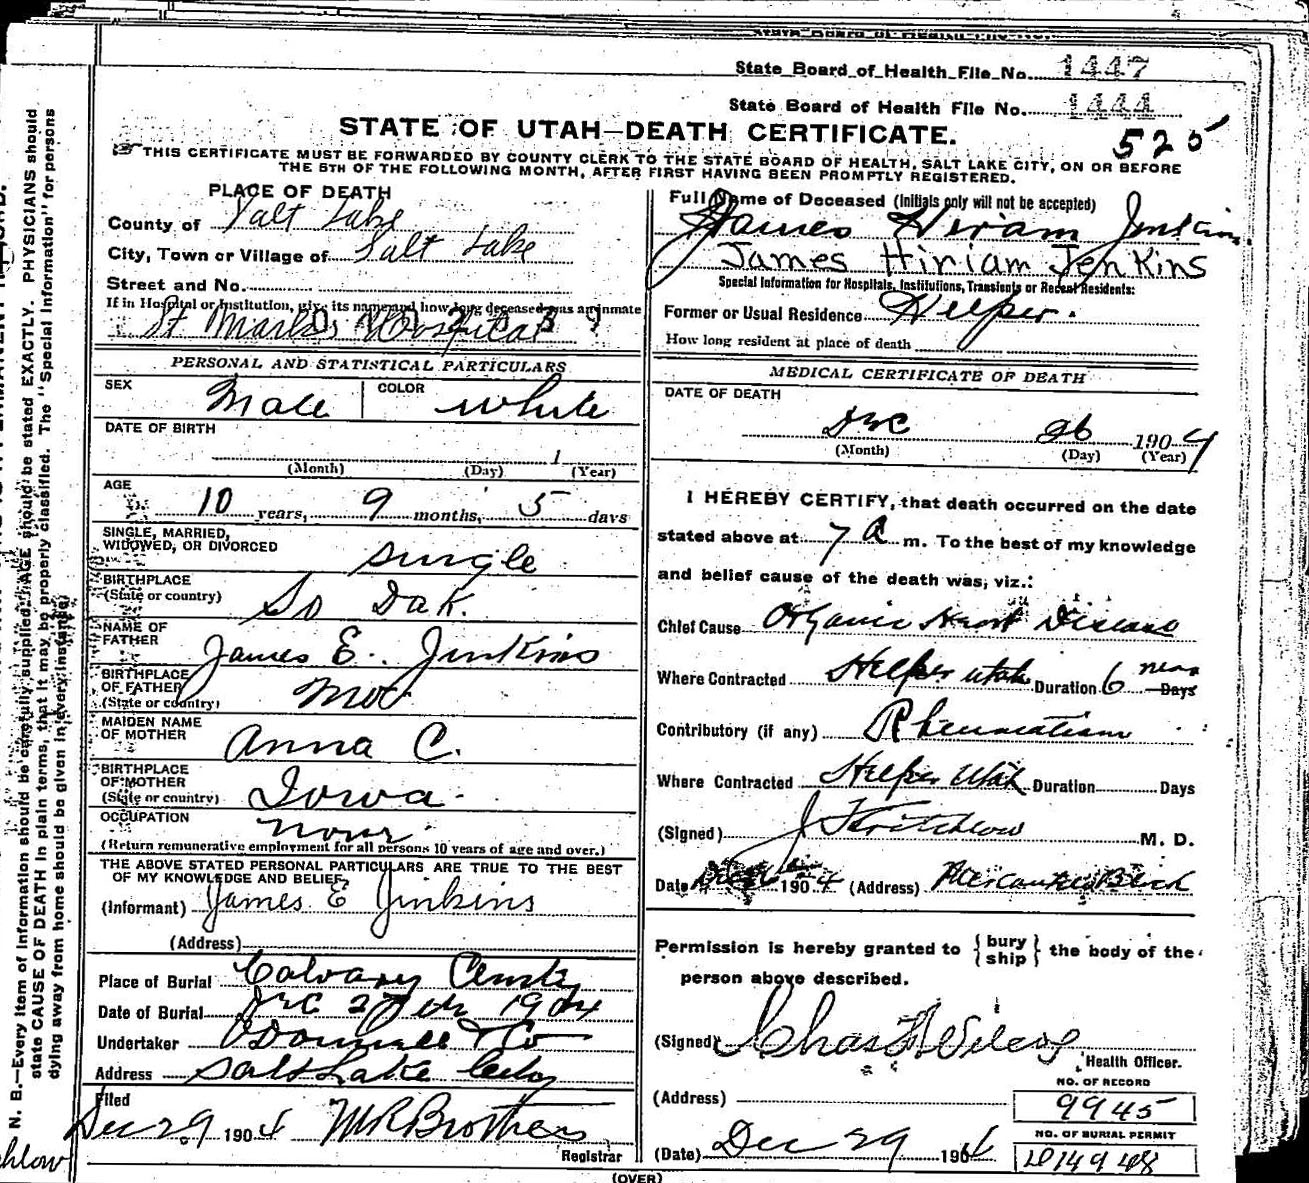 State Board of Health File No. 1447
State Board of Health File No. 1444
STATE OF UTAH—DEATH CERTIFICATE.
525
THIS CERTIFICATE MUST BE FORWARDED BY COUNTY CLERK TO THE STATE BOARD OF HEALTH, SALT LAKE CITY, ON OR BEFORE
THE 5TH OF THE FOLLOWING MONTH, AFTER FIRST HAVING BEEN PROMPTLY REGISTERED.
N. B.—Every item of information should be carefully supplied. AGE should be stated EXACTLY. PHYSICIANS should
state CAUSE OF DEATH in plain terms, that it may be properly classified. The "Special Information" for persons
dying away from home should be given in every instance.
PLACE OF DEATH
County of Salt Lake
City, Town or Village of Salt Lake
Street and No.
If in Hospital or Institution, give its name and how long deceased was an inmate
St Marks Hospital
PERSONAL AND STATISTICAL PARTICULARS
SEX Male COLOR White
DATE OF BIRTH
1
(Month) (Day) (Year)
AGE
10 years, 9 months, 5 days
SINGLE, MARRIED,
WIDOWED, OR DIVORCED single
BIRTHPLACE
(State or country) So Dak.
NAME OF
FATHER James E. Jenkins
BIRTHPLACE
OF FATHER
(State or country) Mo
MAIDEN NAME
OF MOTHER Anna C.
BIRTHPLACE
OF MOTHER
(State or country) Iowa
OCCUPATION none
(Return remunerative employment for all persons 10 years of age and over.)
THE ABOVE STATED PERSONAL PARTICULARS ARE TRUE TO THE BEST
OF MY KNOWLEDGE AND BELIEF
(Informant) James E Jenkins
(Address)
Place of Burial Calvary Cemty
Date of Burial Dec 27th 1904
Undertaker O'Donnell & Co
Address Salt Lake City
Filed
Dec 29 1904 M R Brothers
Registrar
Full Name of Deceased (Initials only will not be accepted)
James Hiram Jenkins
James Hiriam Jenkins
Special Information for Hospitals, Institutions, Transients or Recent Residents:
Former or Usual Residence Helper.
How long resident at place of death
MEDICAL CERTIFICATE OF DEATH
DATE OF DEATH
Dec 26 1904
(Month) (Day) (Year)
I HEREBY CERTIFY, that death occurred on the date
stated above at 7 A m. To the best of my knowledge
and belief cause of the death was, viz.:
Chief Cause Organic Heart Disease
Where Contracted Helper Utah Duration 6 Days
Contributory (if any) Rheumatism
Where Contracted Helper Utah Duration Days
(Signed) M. D.
Date 1904 (Address)
Permission is hereby granted to {bury ship} the body of the
person above described.
(Signed) Chas
Health Officer.
(Address)
NO. OF RECORD
9945
(Date) Dec 29 1904
NO. OF BURIAL PERMIT
(OVER)